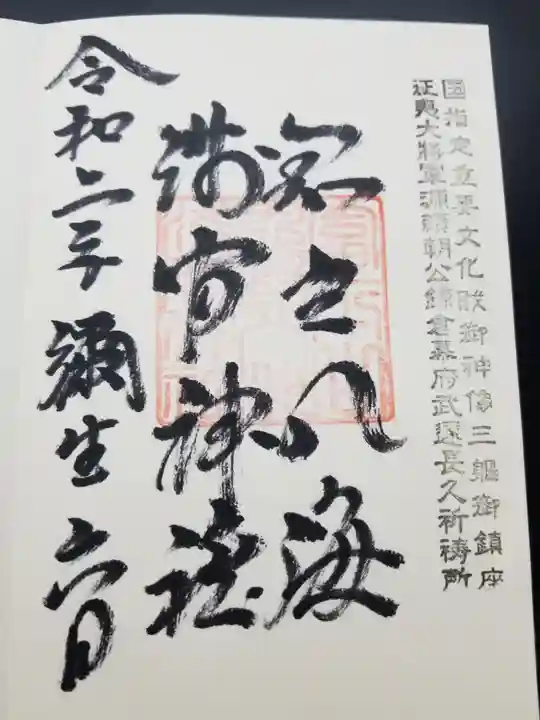 国指定重要文化財御神像三軀御鎮座
征夷大將軍源頼朝公鎌倉幕府武運長久祈祷所
之八海
宮神社
令和二年彌生六日